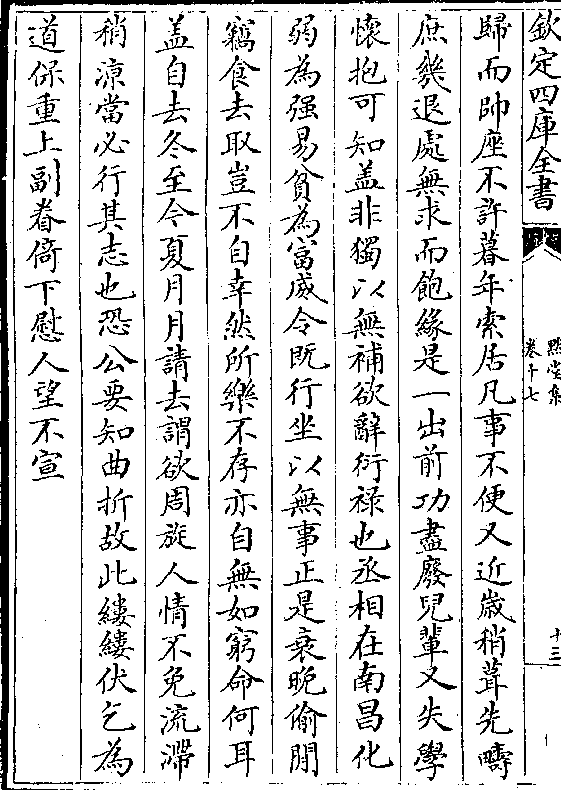 欽定四庫全書
點堂集
卷十七
十三
歸而帥座不許暮年索居凡事不便又近歲稍葺先疇
庶幾退處無求而飽緣是一出前功盡廢兒輩又失學
懷抱可知盖非獨以無補欲辭衍祿也丞相在南昌化
弱為强易貧為富威令既行坐以無事正是衰晚偷閒
竊食去取豈不自幸然所樂不存亦自無如窮命何耳
盖自去冬至今夏月月請去謂欲周旋人情不免流滯
稍涼當必行其志也恐公要知曲折故此縷縷伏乞為
道保重上副眷倚下慰人望不宣